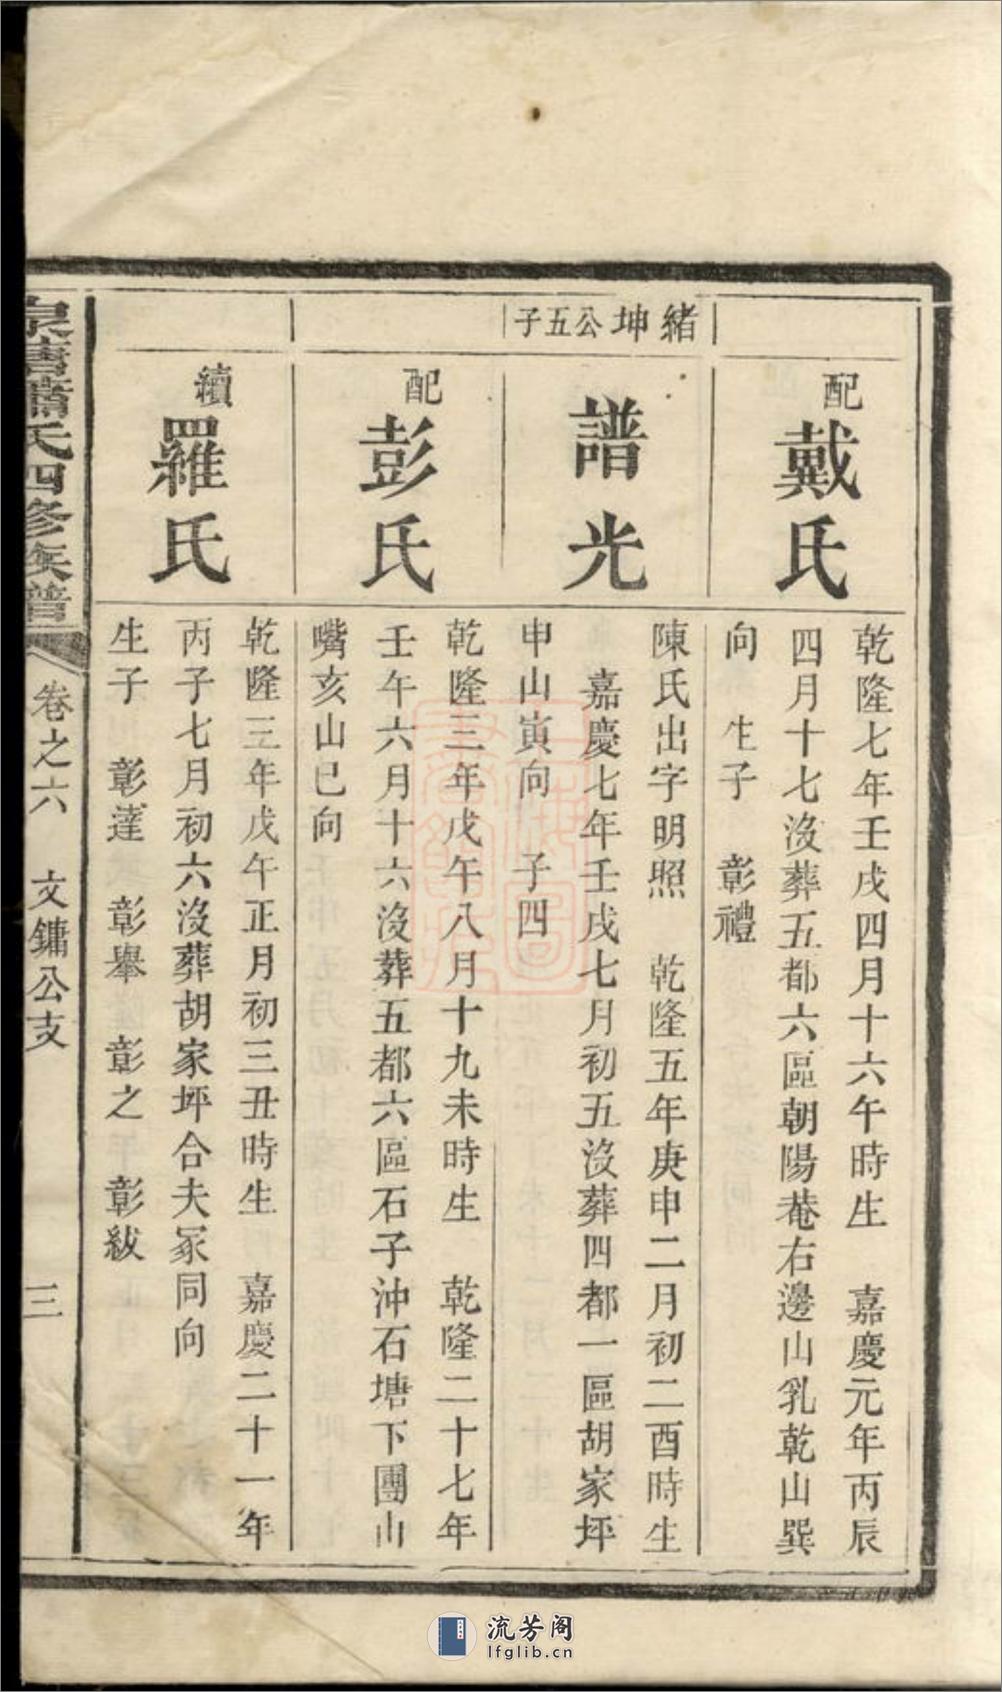 配
戴氏
乾隆七年壬戌四月十六午時生　嘉慶元年丙辰
四月十七沒葬五都六區朝陽菴右邊山乳乾山巽
向　生子　彰禮
緒坤公五子
譜光
陳氏出字明照　乾隆五年庚申二月初二酉時生
嘉慶七年壬戌七月初五沒葬四都一區胡家坪
申山寅向　子四
配
彭氏
乾隆三年戊午八月十九未時生　乾隆二十七年
壬午六月十六沒葬五都六區石子沖石塘下團山
嘴亥山巳向
續
羅氏
乾隆三年戊午正月初三丑時生　嘉慶二十一年
丙子七月初六沒葬胡家坪合夫冢同向
生子　彰達　彰舉　彰之　彰紱
氏四修族譜
卷之六　文鏞公支
三
流芳阁
lfglib.cn